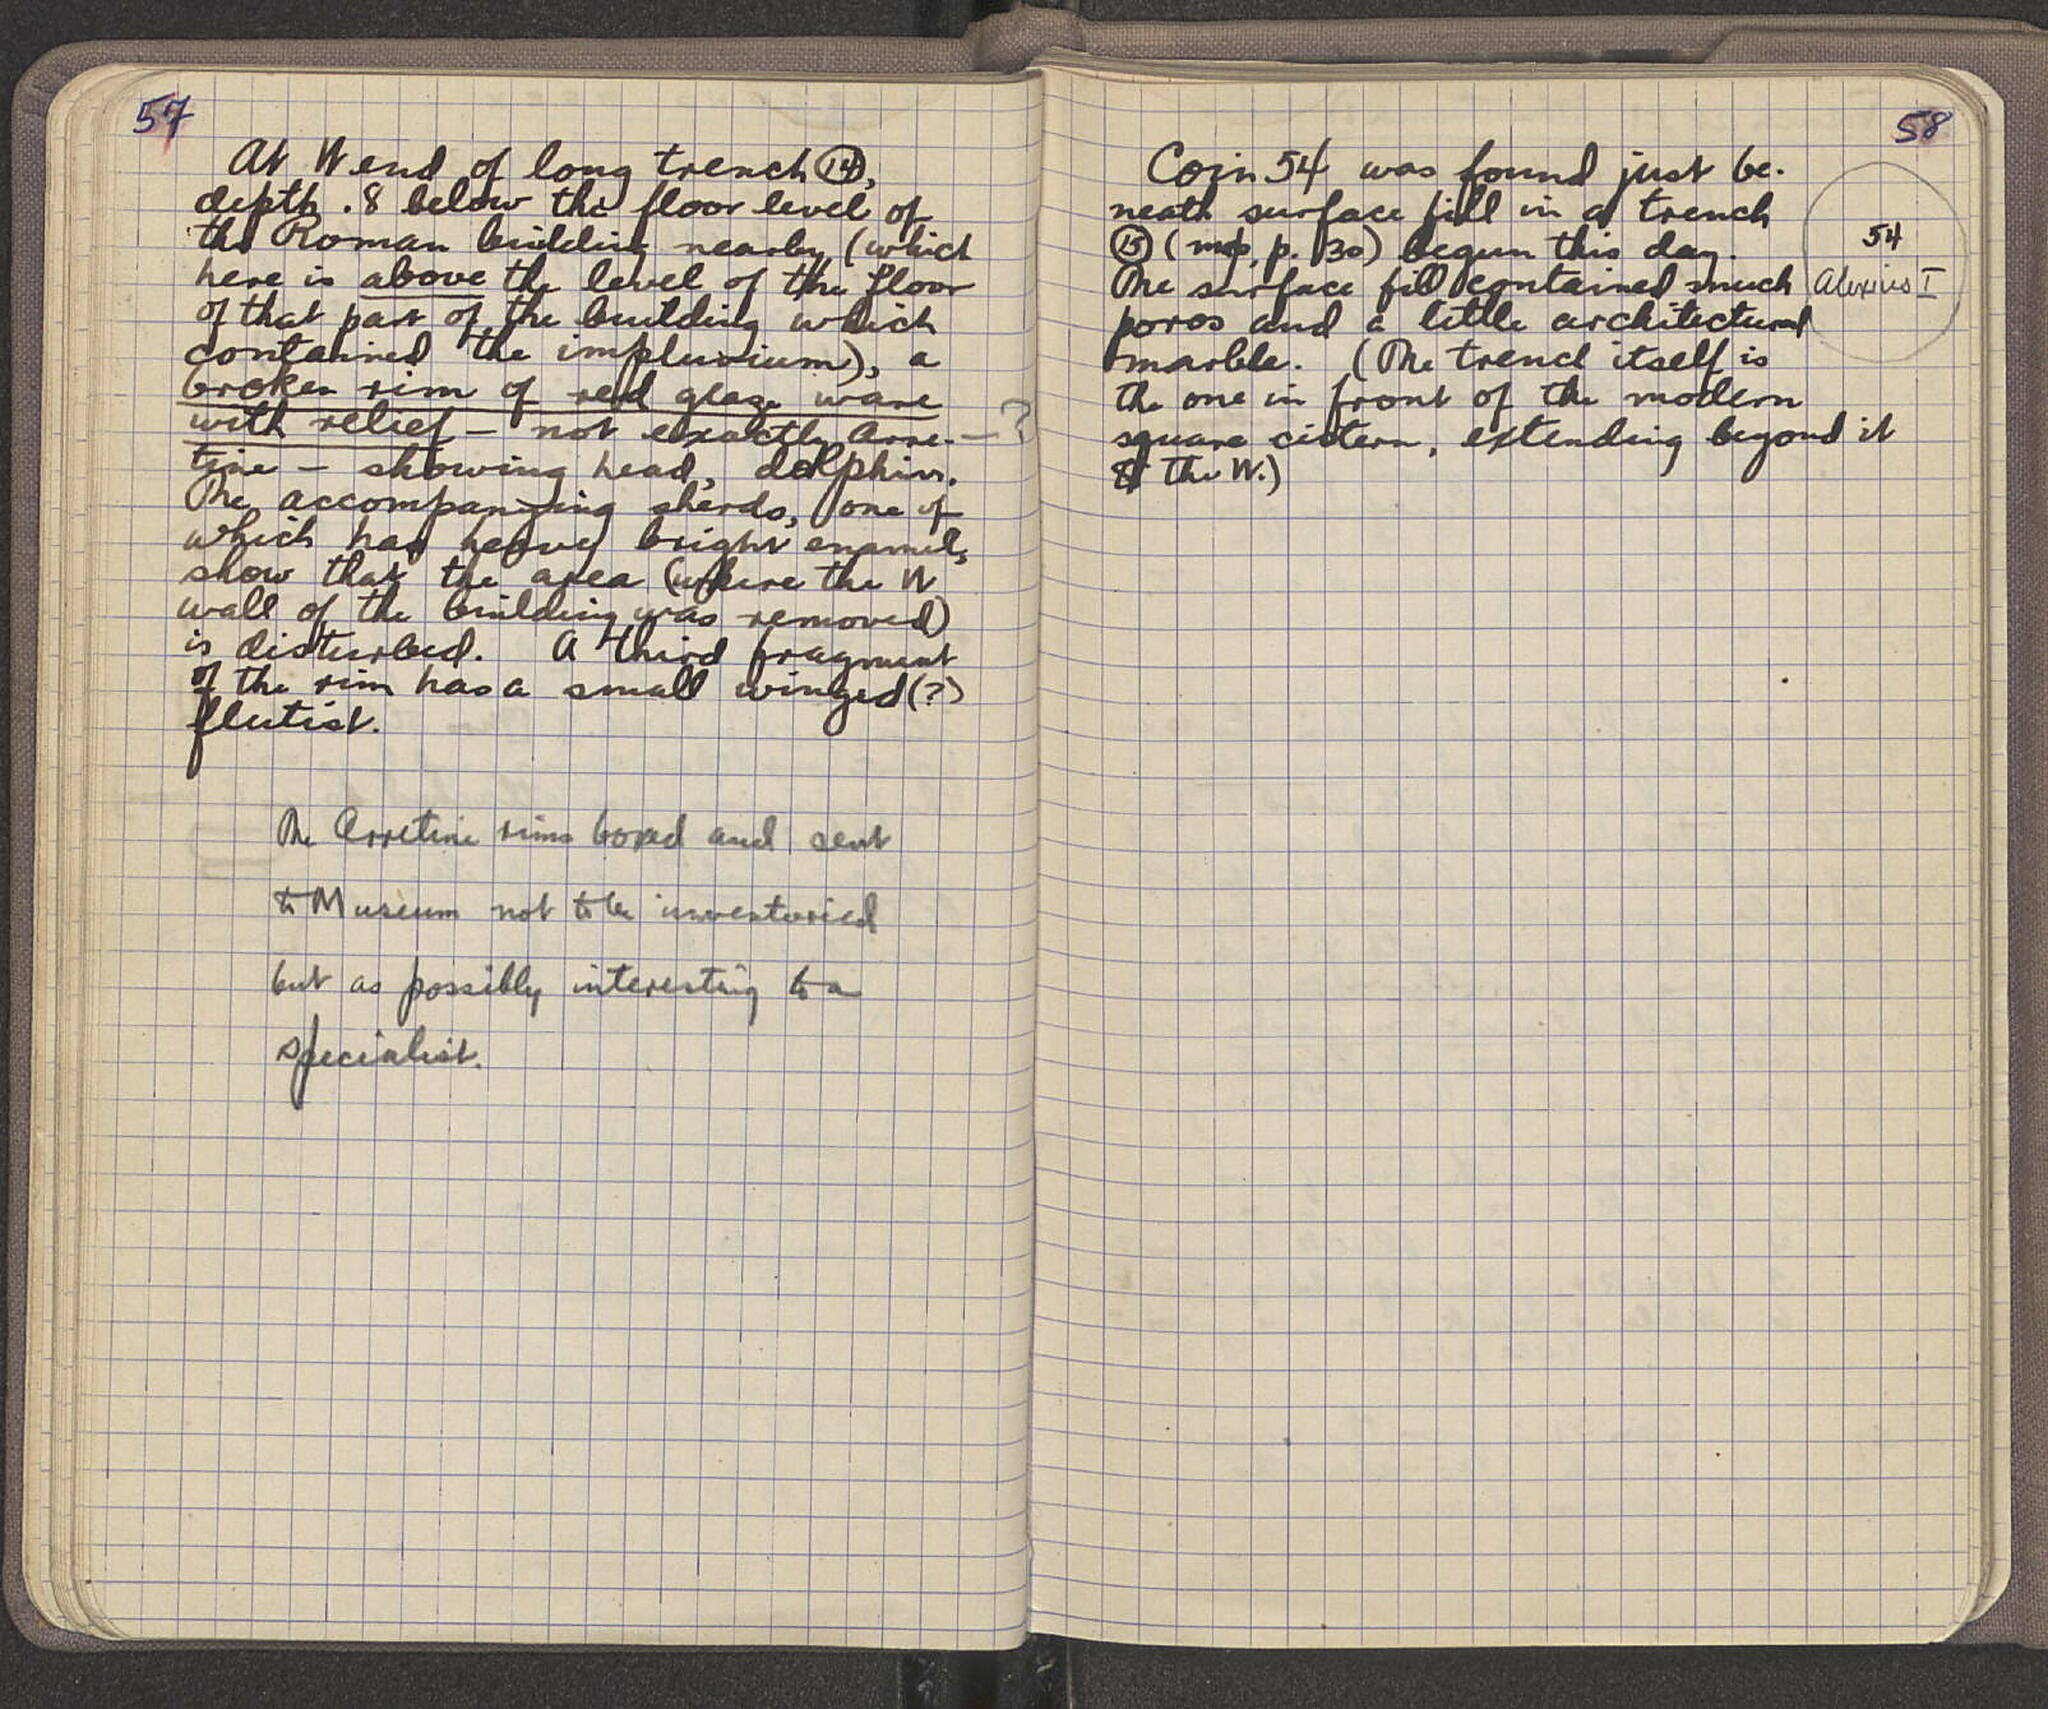 57
At W end of long trench 14,
depth .8 below the floor level of
the Roman building nearby (which
here is above the level of the floor
of that part of the building which
contained the impluvium), a
broken rim of red glaze ware
with relief – not exactly Arre- – ?
tine – showing head, dolphin.
The accompanying sherds, one of
which has heavy bright enamel,
show that the area (where the W
wall of the building was removed)
is disturbed. A third fragment
of the rim has a small winged (?)
flutist.
The Arretine rims boxed and sent
to Museum not to be inventoried
but as possibly interesting to a
specialist.
58
Coin 54 was found just be-
neath surface fill in a trench
15 (map, p. 30) begun this day.
The surface fill contained much
poros and a little architectural
marble. (The trench itself is
the one in front of the modern
square cistern, extending beyond it
to the W.)
54
Alexius I